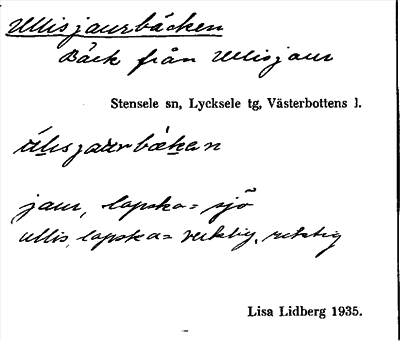 Ullisjaurbäcken
Bäck från Ullisjaur
Stensele sn, Lycksele tg, Västerbottens l.
ulisjaurbäkan
jaur, lapska = sjö
ullis, lapska = verklig, riktig
Lisa Lidberg 1935.